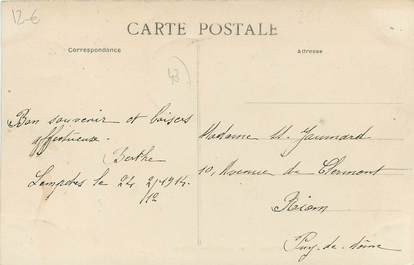 12-6
CARTE POSTALE
Correspondance
Adresse
Bon souvenir et baisers
affectueux.
Berthe
Lempdes le 24 2/1914.
Madame
10, Avenue de Clermont
Riom
Puy-de-dôme